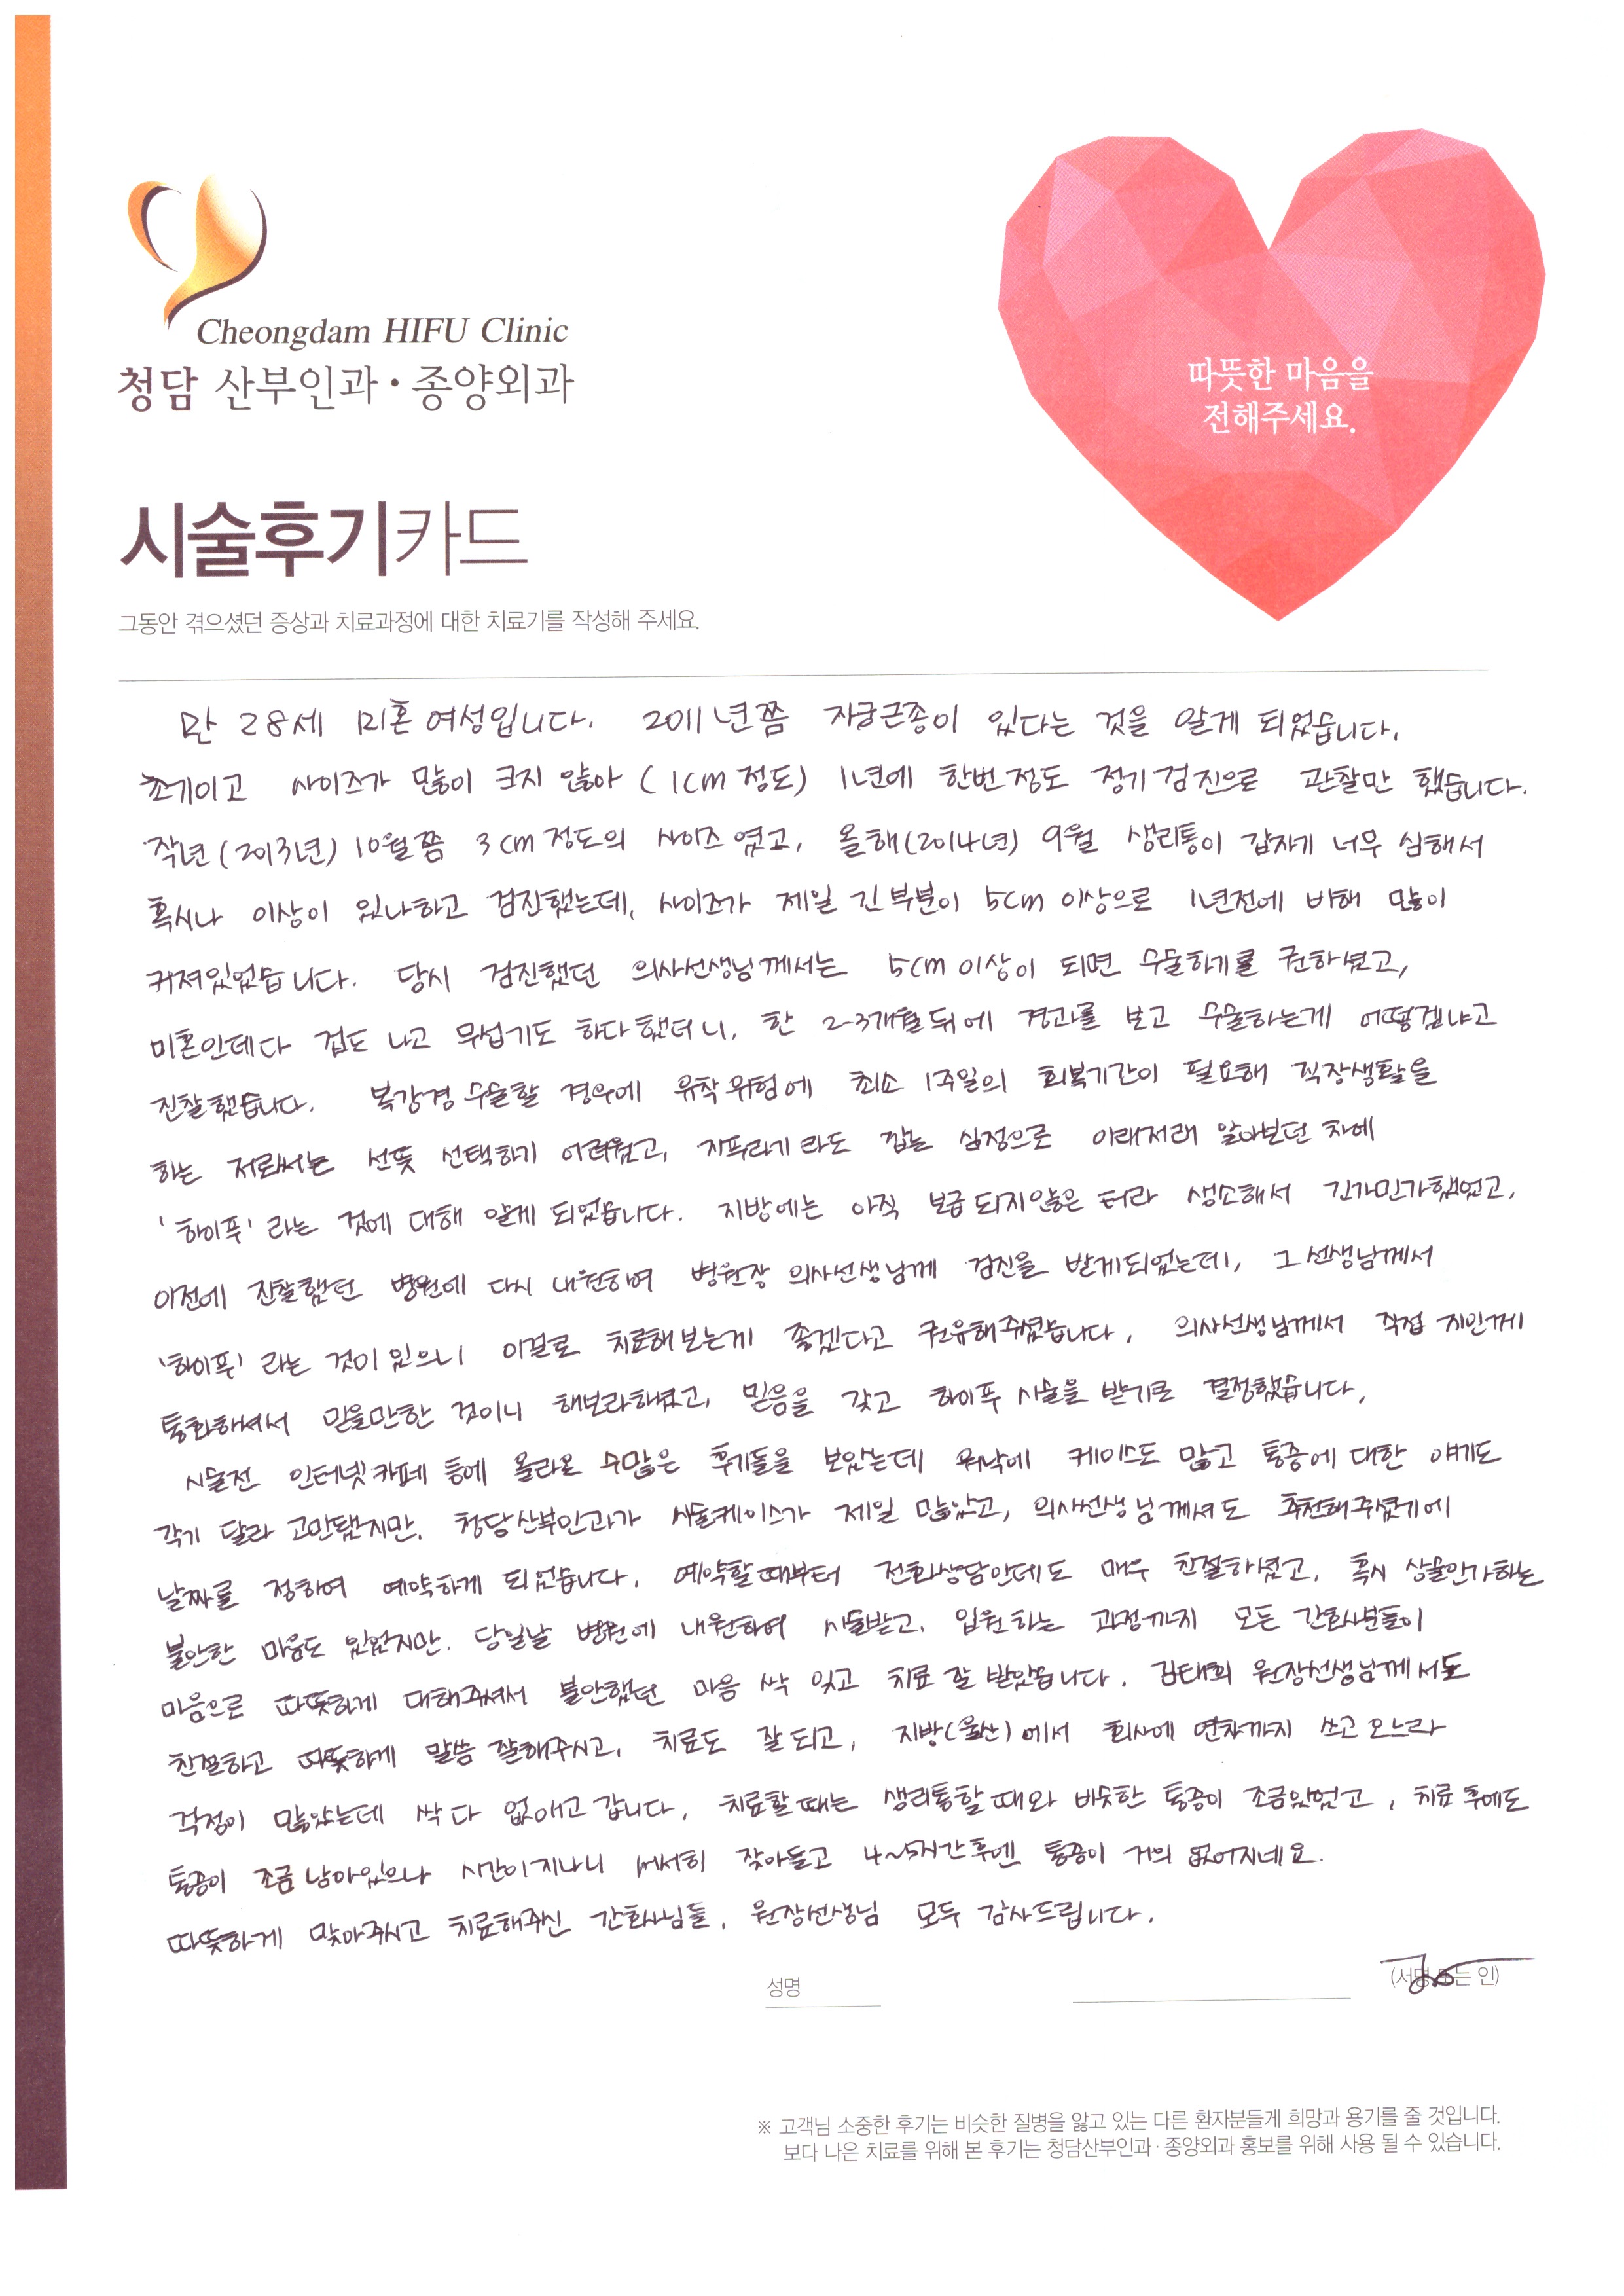 Cheongdam HIFU Clinic
청담 산부인과·종양외과
따뜻한 마음을
전해주세요.
시술후기카드
그동안 겪으셨던 증상과 치료과정에 대한 치료기를 작성해 주세요.
만 28세 미혼 여성입니다. 2011년쯤 자궁근종이 있다는 것을 알게 되었습니다.
초기이고 사이즈가 많이 크지 않아 (1cm 정도) 1년에 한번 정도 정기 검진으로 관찰만 했습니다.
작년(2013년) 10월쯤 3cm 정도의 사이즈 였고, 올해(2014년) 9월 생리통이 갑자기 너무 심해서
혹시나 이상이 있나하고 검진했는데, 사이즈가 제일 긴 부분이 5cm 이상으로 1년전에 비해 많이
커져있었습니다. 당시 검진했던 의사선생님께서는 5cm 이상이 되면 수술하기를 권하셨고,
미혼인데다 겁도 나고 무섭기도 하다 했더니, 한 2-3개월 뒤에 경과를 보고 수술하는게 어떻겠냐고
진찰했습니다. 복강경 수술할 경우에 유착위험에 최소 1주일의 회복기간이 필요해 직장생활을
하는 저로써는 선뜻 선택하기 어려웠고, 지푸라기 라도 잡는 심정으로 이래저래 알아보던 차에
'하이푸' 라는 것에 대해 알게 되었습니다. 지방에는 아직 보급 되지않은 터라 생소해서 긴가민가했었고,
이전에 진찰했던 병원에 다시 내원하여 병원장 의사선생님께 검진을 받게되었는데, 그 선생님께서
'하이푸' 라는 것이 있으니 이걸로 치료해 보는게 좋겠다고 권유해주셨습니다. 의사선생님께서 직접 지인께
통화하셔서 믿을만한 것이니 해보라하셨고, 믿음을 갖고 하이푸 시술을 받기로 결정했습니다.
시술전 인터넷 카페 등에 올라온 수많은 후기들을 보았는데 워낙에 케이스도 많고 통증에 대한 얘기도
각기 달라 고민됐지만, 청담산부인과가 시술케이스가 제일 많았고, 의사선생님께서도 추천해주셨기에
날짜를 정하여 예약하게 되었습니다. 예약할때부터 전화상담인데도 매우 친절하셨고, 혹시 상술인가하는
불안한 마음도 있었지만, 당일날 병원에 내원하여 시술받고, 입원하는 과정까지 모든 간호사분들이
마음으로 따뜻하게 대해주셔서 불안했던 마음 싹 잊고 치료 잘 받았습니다. 김태희 원장선생님께서도
친절하고 따뜻하게 말씀 잘해주시고, 치료도 잘 되고, 지방(울산)에서 회사에 연차까지 쓰고 오느라
걱정이 많았는데 싹 다 없애고 갑니다. 치료할 때는 생리통할 때와 비슷한 통증이 조금있었고, 치료 후에도
통증이 조금 남아있으나 시간이 지나니 서서히 잦아들고 4~5시간 후엔 통증이 거의 없어지네요.
따뜻하게 맞아주시고 치료해주신 간호사님들, 원장선생님 모두 감사드립니다.
성명 (서명 또는 인)
※ 고객님 소중한 후기는 비슷한 질병을 앓고 있는 다른 환자분들게 희망과 용기를 줄 것입니다.
보다 나은 치료를 위해 본 후기는 청담산부인과·종양외과 홍보를 위해 사용 될 수 있습니다.